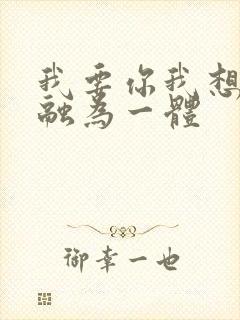 我要你我想
融為一體
御幸一也